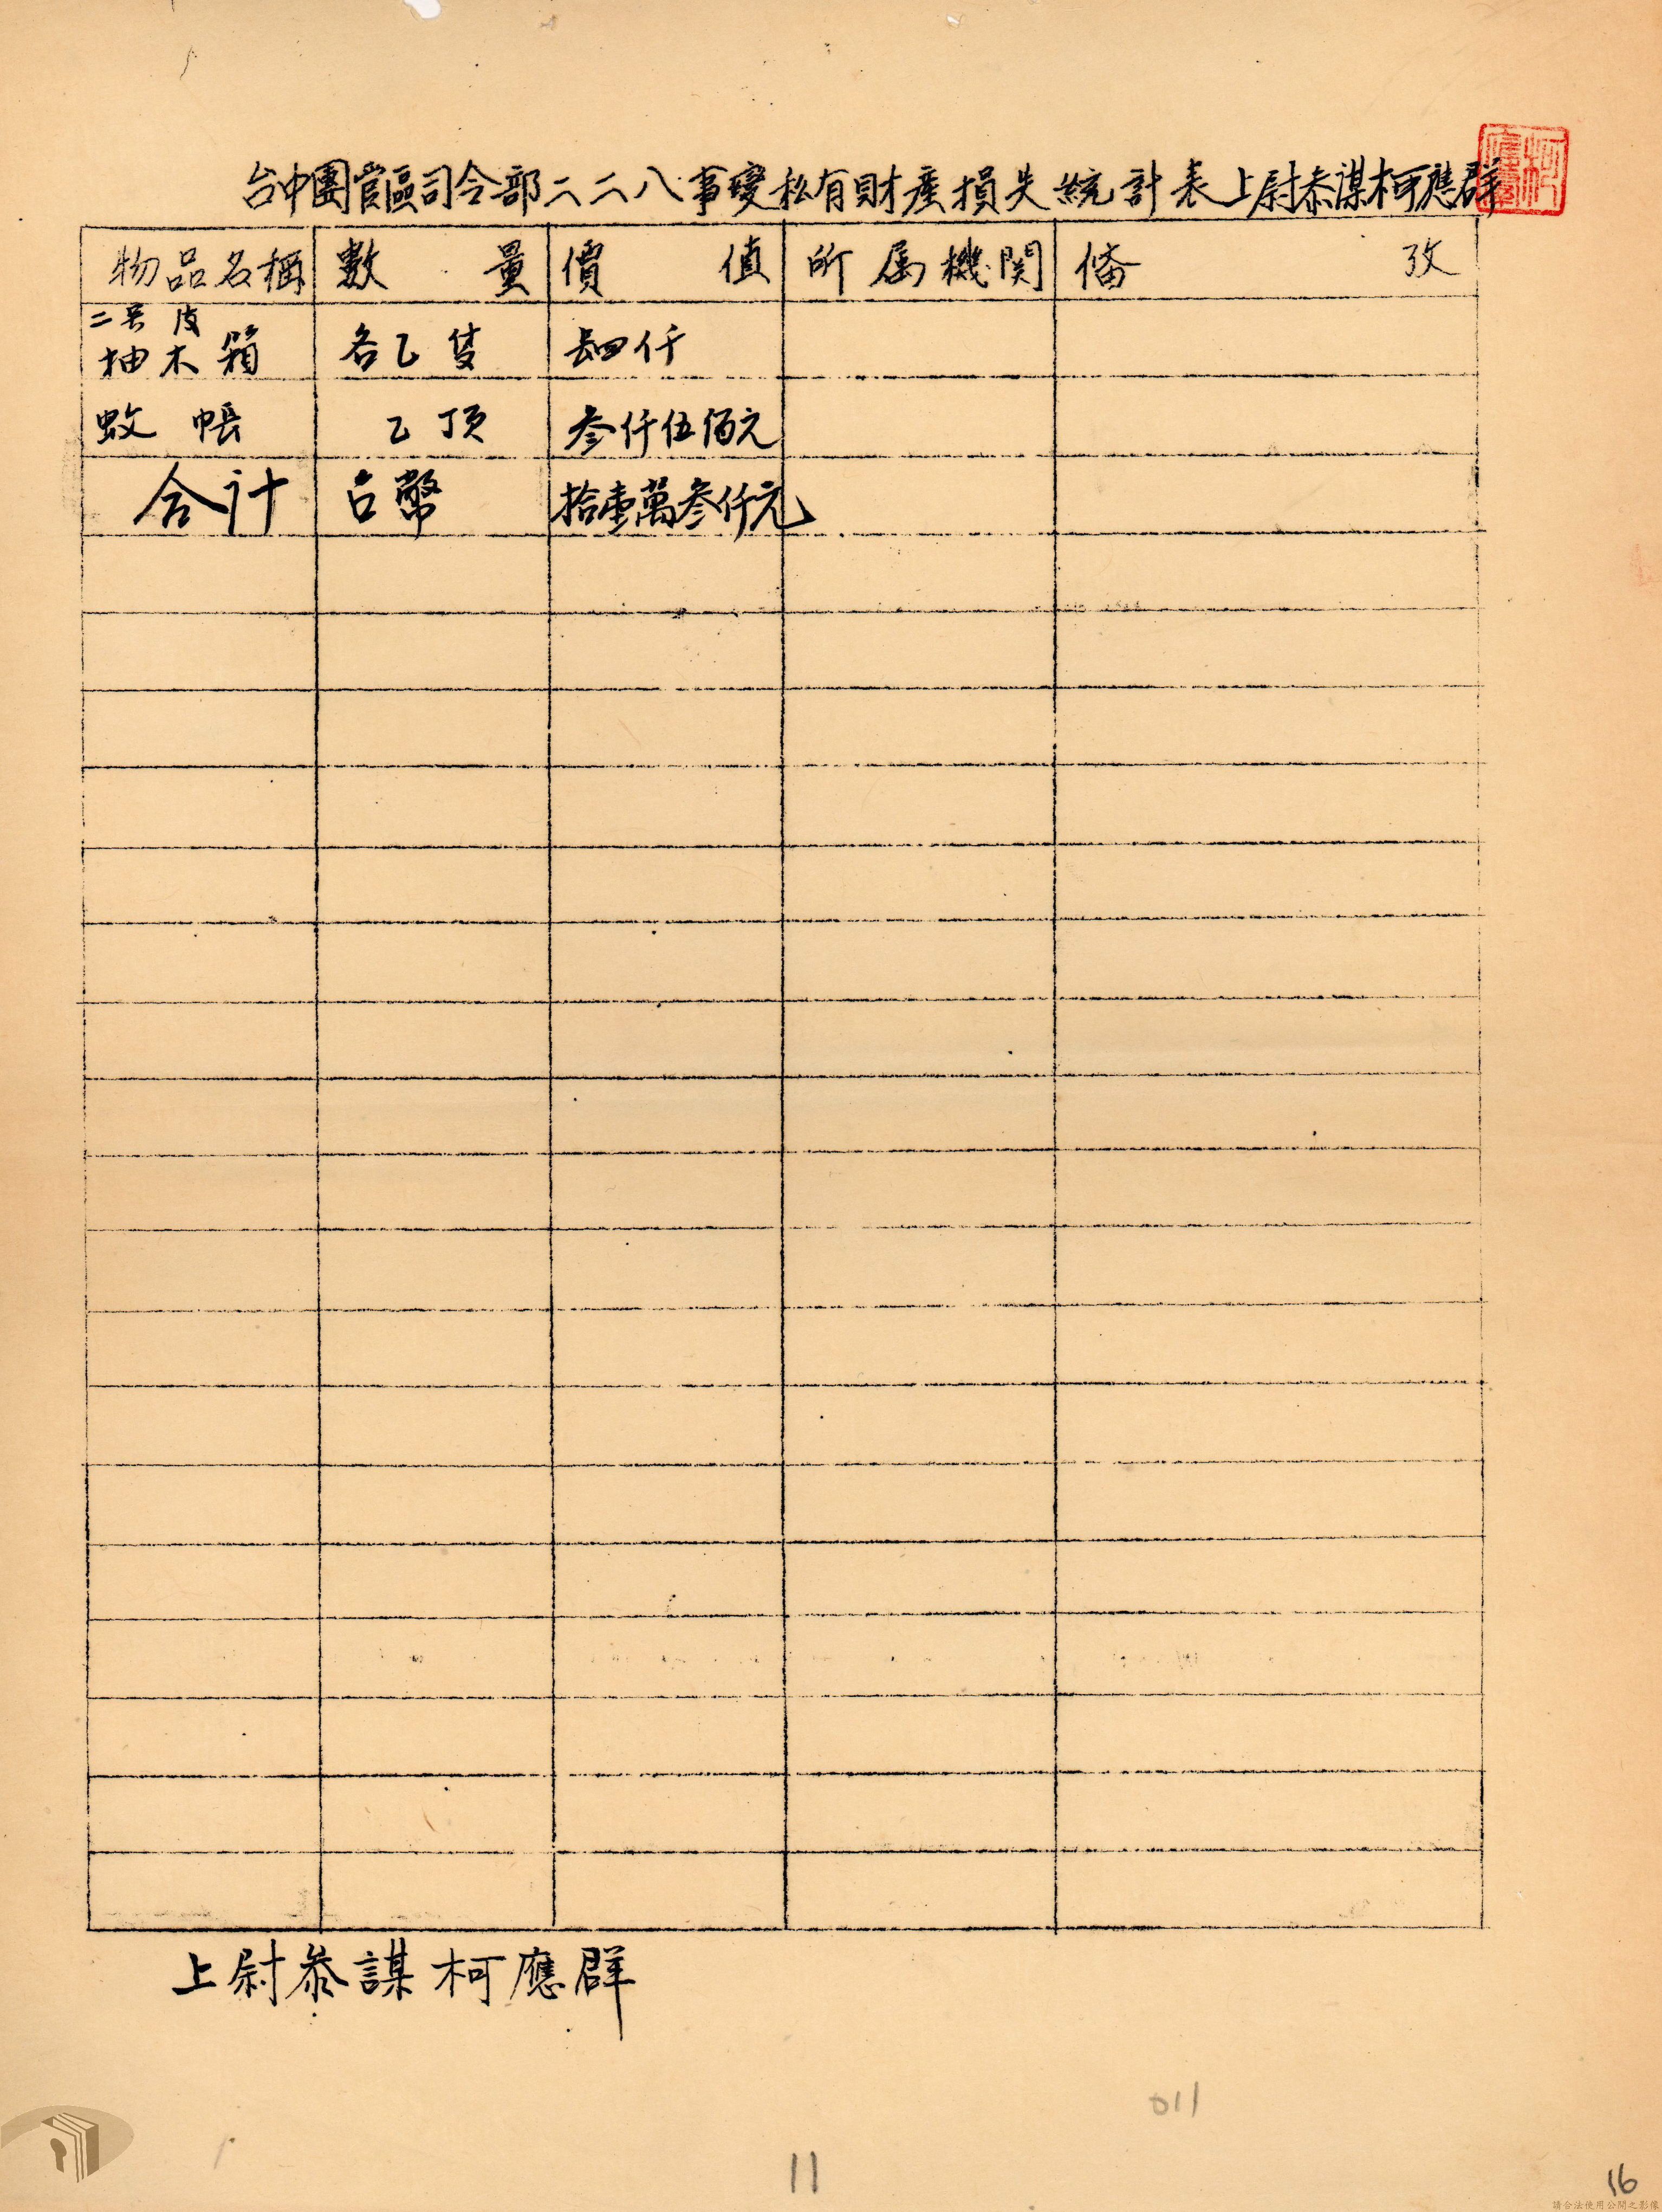 台中團管區司令部二二八事變私有財產損失統計表上尉叅謀柯應群
物品名稱 數量 價值 所属機関 俻攷
二号皮
抽木箱 各乙隻 四仟
蚊帳 乙頂 叁仟伍佰元
合计 台幣 拾壹萬叁仟元
上尉叅謀柯應群
011
11
16
請合法使用公開之影像